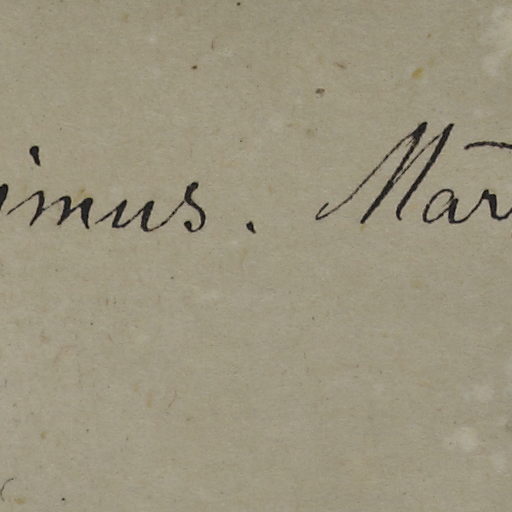 imus. Mar